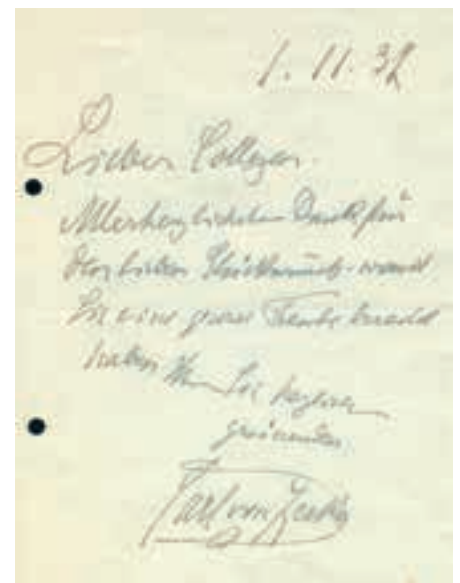 1. 11. 32
Lieber College.
Allerherzlichsten Dank für
Ihre lieben Glückwünsche womit
Sie eine grosse Freude bereitet
haben Ihr Sie herzlich
grüssender
Carl von